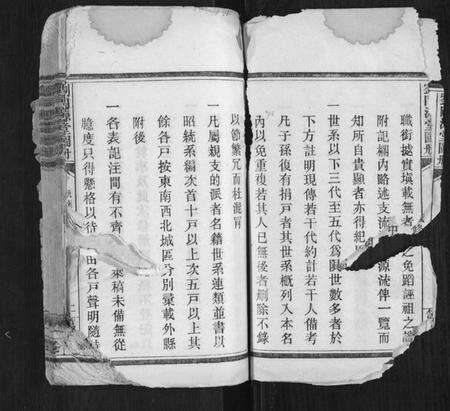 職銜據實填載無者免蹈誣祖之譏
附記欄內略述支流源流俾一覽而
知所自貴顯者亦得紀
一世系以下三代至五代為闕世數多者於
下方註明現傳若干代約計若干人備考
凡子孫復有捐戸者其世系概列入本名
內以免重複若其人已無後者刪除不錄
以節繁冗而杜混冐
一凡屬親支的派者名籍世系連類並書以
昭統系編次首十戸以上次五戸以上其
餘各戸按東南西北城區分別彙載外縣
附後
一各表記注間有不齊來稿未備無從
臆度只得懸格以待由各戸聲明隨時